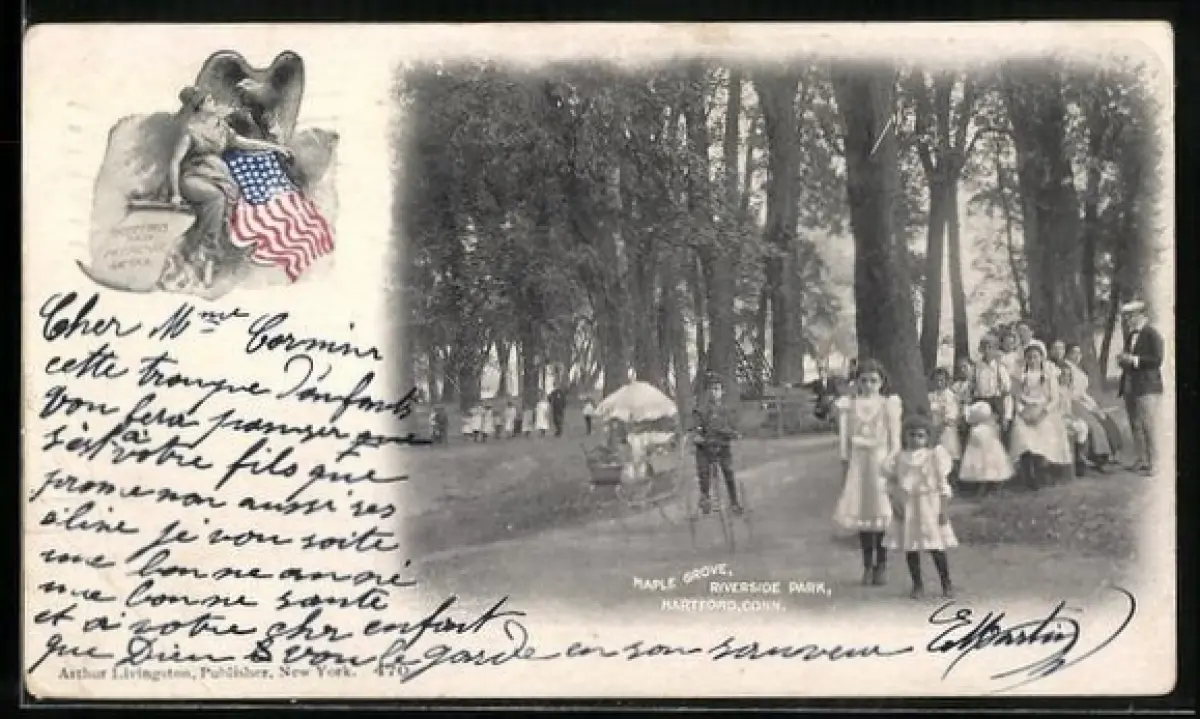 Cher Mme Cormier
cette troupe D'enfants
vou fera panser que
s'est à votre fils que
prome non aussi ses
éline je vou soite
une bonne anné
une bonne santé
et a votre cher enfant
que Dieu vou le garde en son sauveur EMartin
MAPLE GROVE,
RIVERSIDE PARK,
HARTFORD, CONN.
Arthur Livingston, Publisher, New York. 470